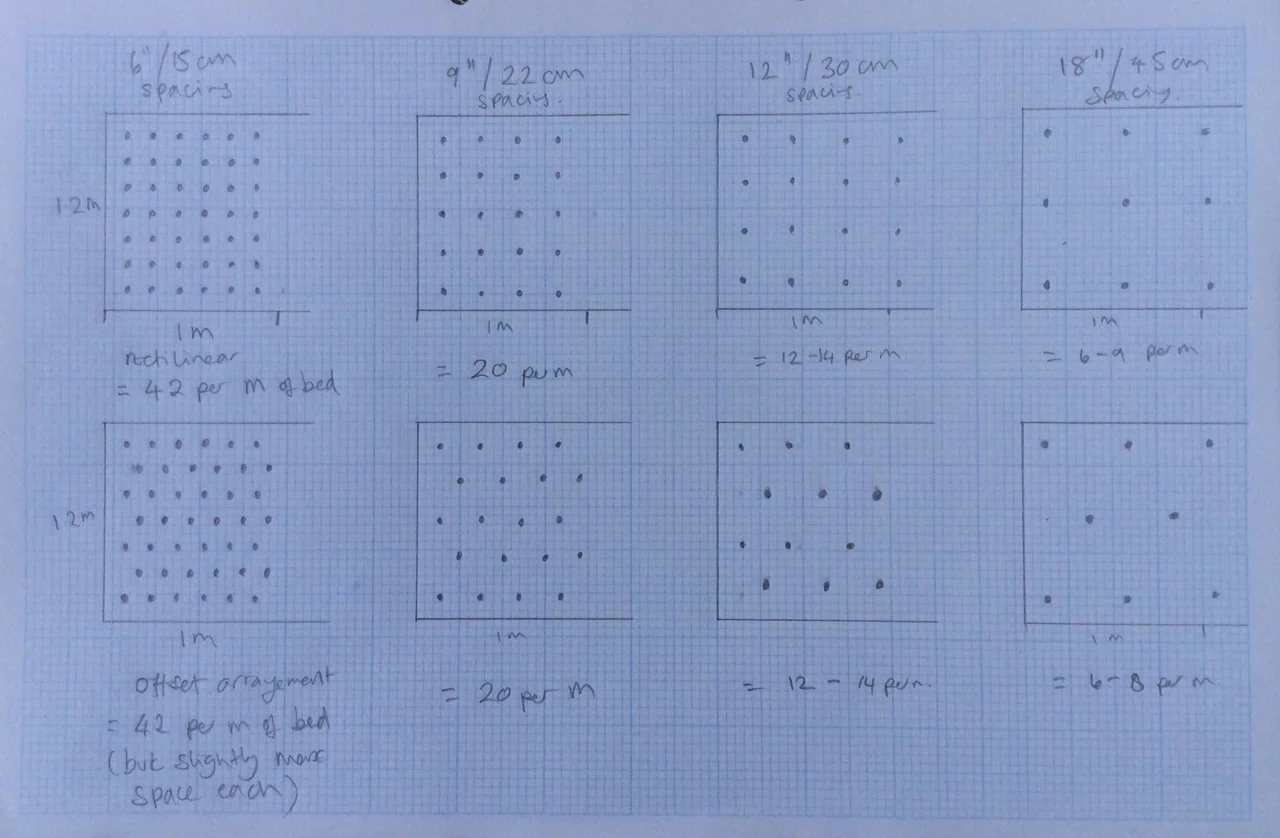 6"/15cm
spacing
9"/22cm
spacing.
12"/30cm
spacing
18"/45cm
spacing.
1.2m
1m
1m
1m
1m
rectilinear
= 42 per m of bed
= 20 per m
= 12-14 per m
= 6-9 per m
1.2m
1m
1m
1m
offset arrangement
= 42 per m of bed
(but slightly more
space each)
= 20 per m
= 12 - 14 per m.
= 6-8 per m